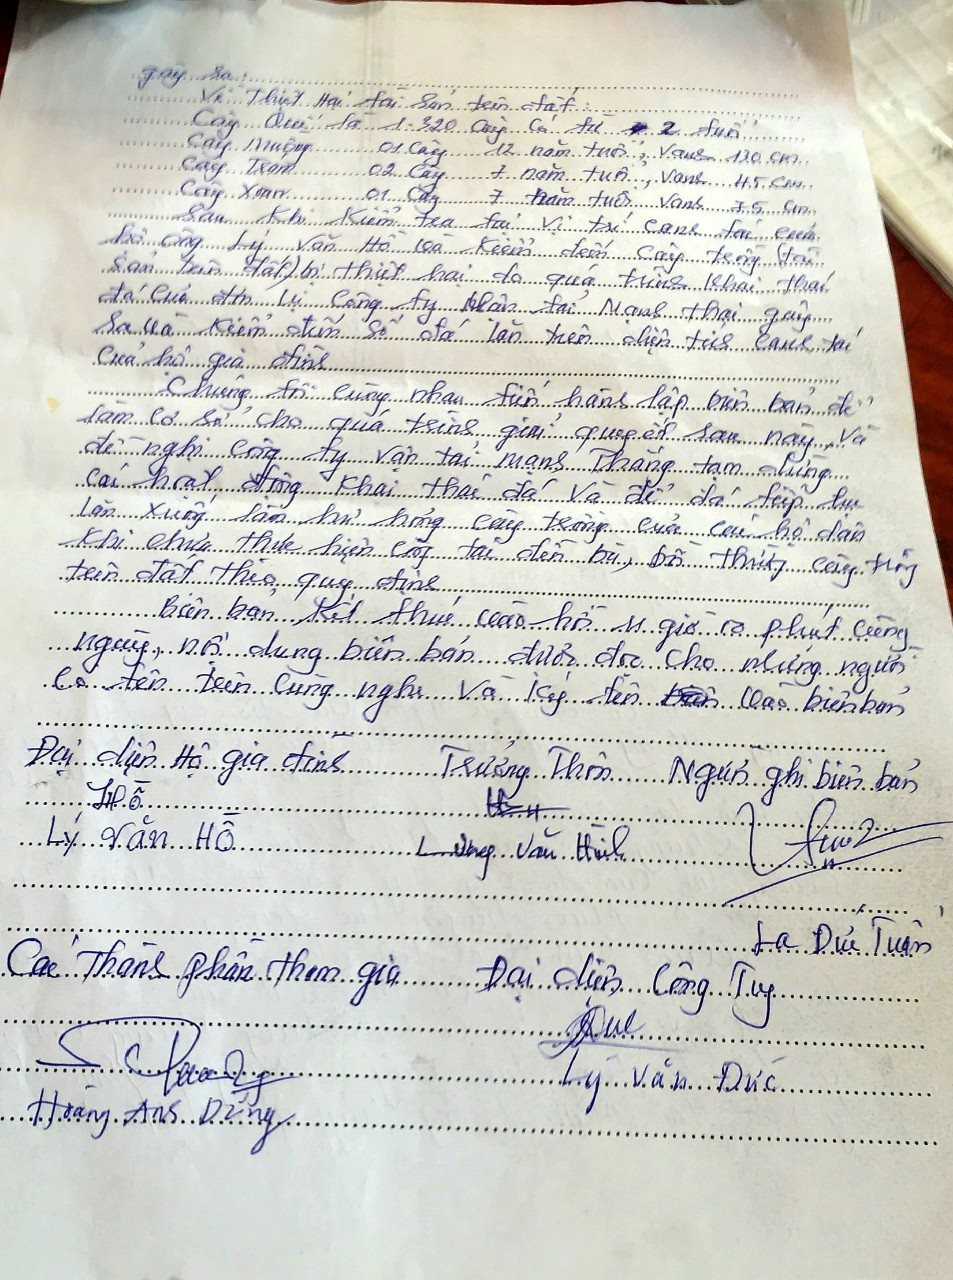 gây ra:
Về Thiệt Hại tài Sản trên đất:
Cây Quế là 1.320 Cây Có từ 2 tuổi
Cây Muồng 01 Cây 12 năm tuổi, Vanh 120 cm
Cây Trám 02 Cây 7 năm tuổi, Vanh 45 cm
Cây Xoan 01 Cây 7 năm tuổi Vanh 75 cm
Sau Khi Kiểm tra tại Vị trí canh tác của
hộ ông Lý Văn Hồ và Kiểm đếm cây trồng (tài
Sản trên đất) bị thiệt hại do quá trình Khai thác
đá của đơn vị Công ty Vận tải Mạnh Thắng gây
ra và Kiểm đếm số đá lăn trên diện tích canh tác
của hộ gia đình
Chúng tôi cùng nhau tiến hành lập biên bản để
làm cơ sở cho quá trình giải quyết sau này, và
đề nghị Công ty vận tải mạnh Thắng tạm dừng
các hoạt động Khai thác đá và để đá tiếp tục
lăn xuống làm hư hỏng cây trồng của các hộ dân
Khi chưa thực hiện công tác đền bù, bồi thường cây trồng
trên đất theo quy định
Biên bản Kết thúc vào hồi 11 giờ 00 phút cùng
ngày, nội dung biên bản được đọc cho những người
Có tên trên Cùng nghe Và Ký tên vào biên bản
Đại diện Hộ gia đình Trưởng Thôn Người ghi biên bản
Hồ
Lý Văn HỒ Lương Văn Hình
La Đức Tuân
Các Thành phần tham gia Đại diện Công Ty
Đức
Lý Văn Đức
Hoàng Anh Dũng